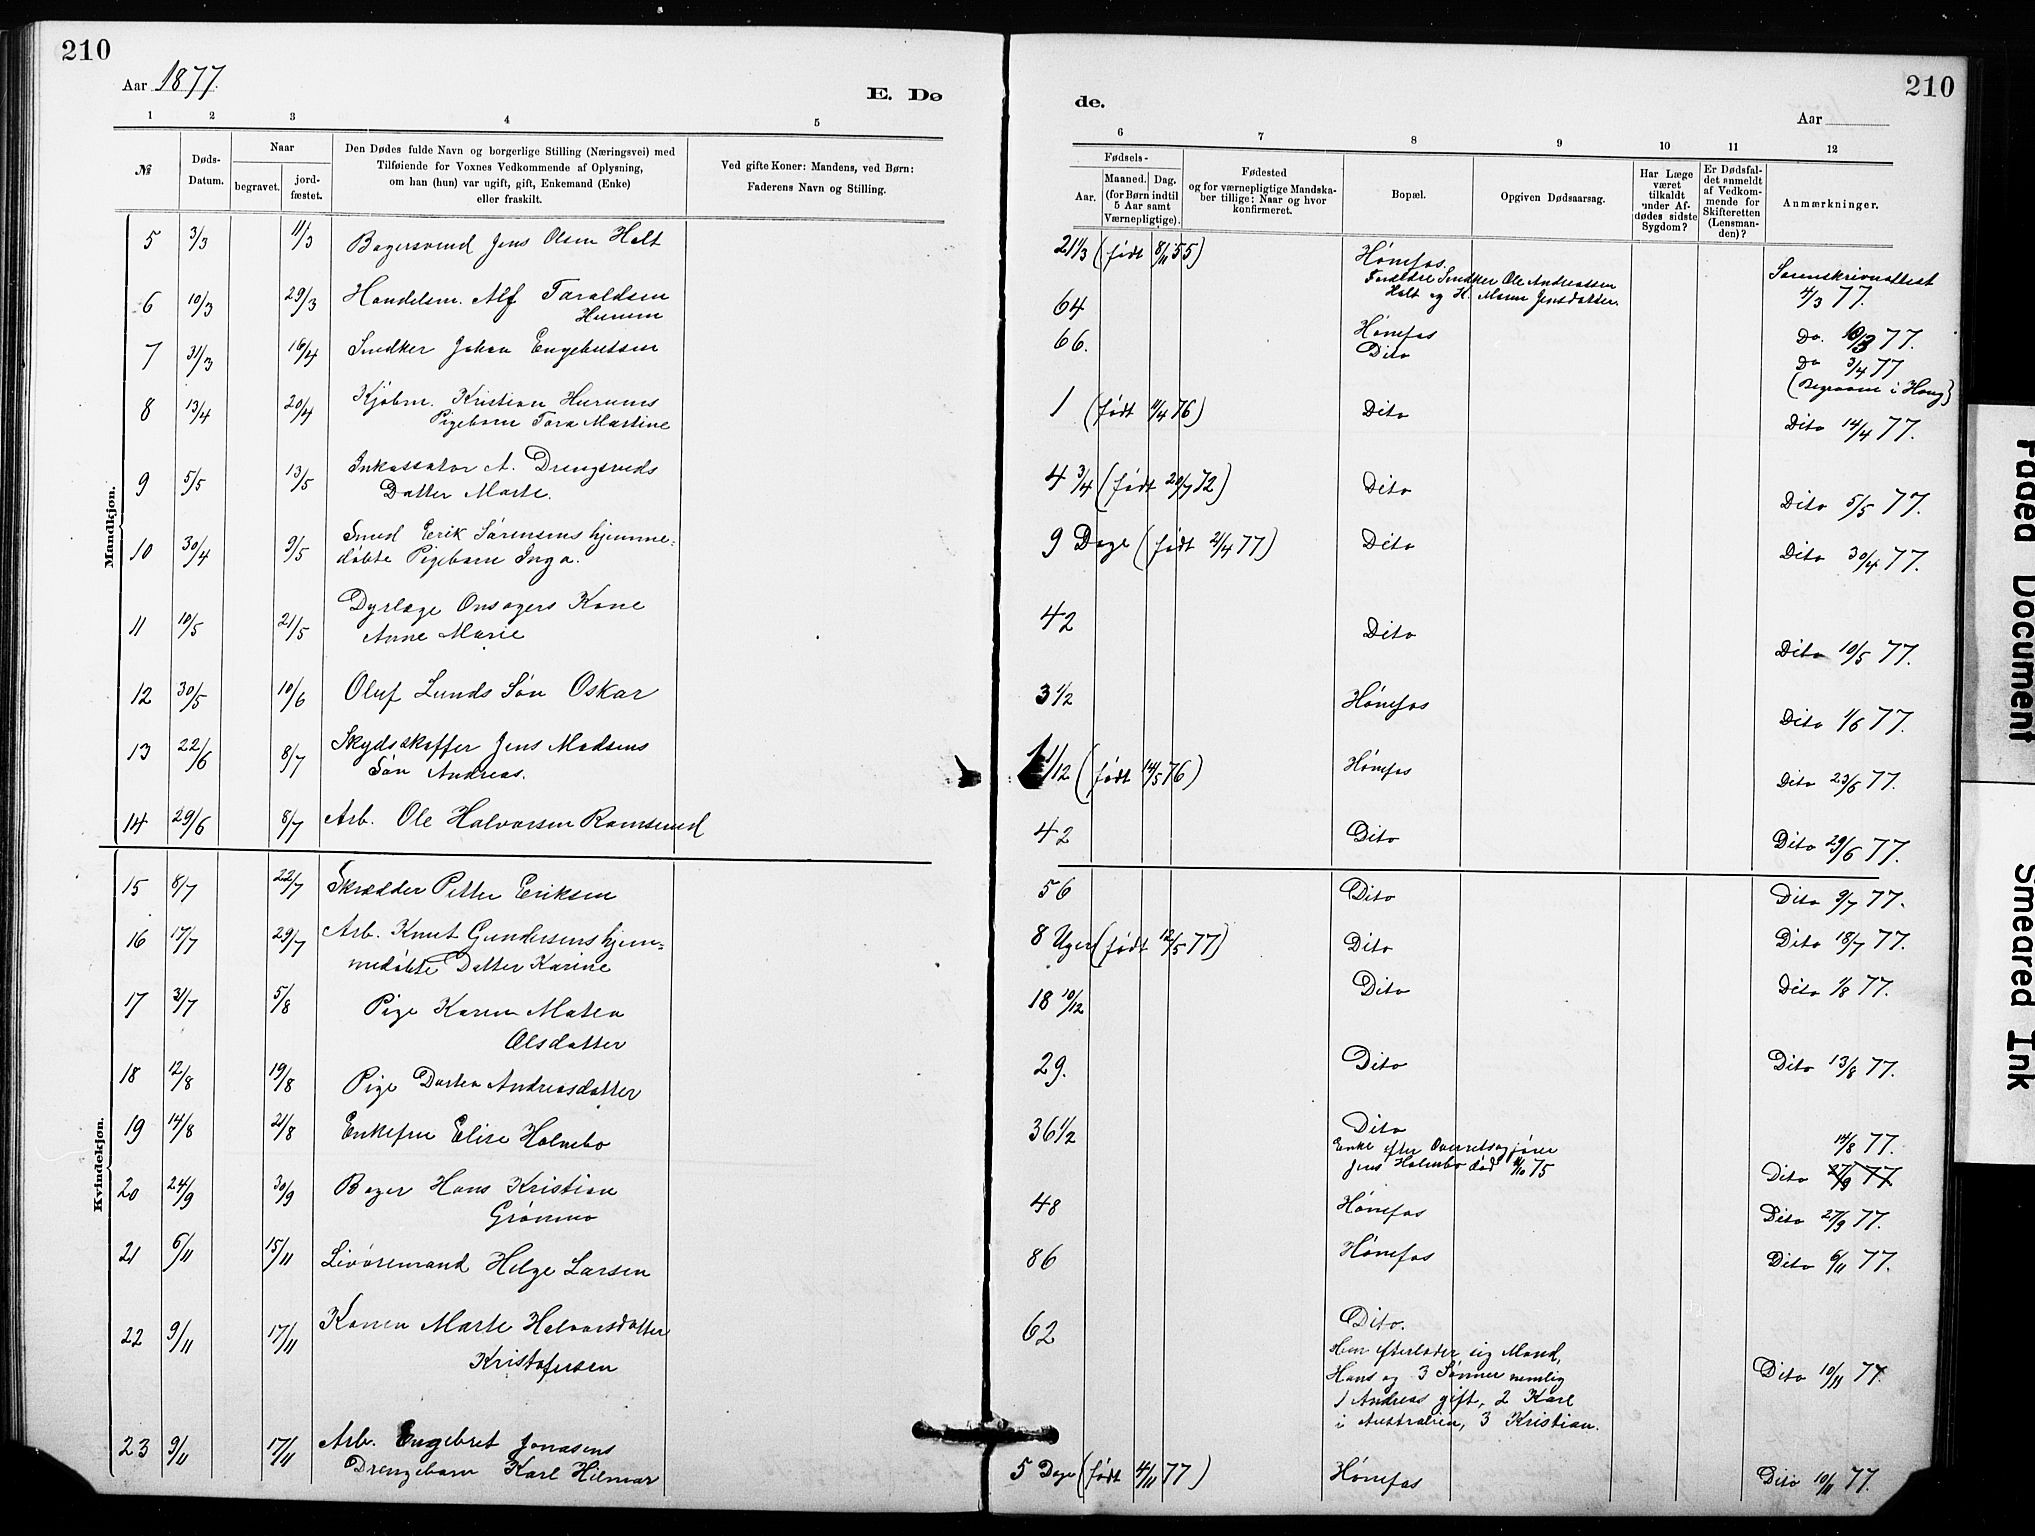 210
Aar 1877.
E. Dø
1 2 3 4 5
Naar
№
Døds-
Datum.
begravet.
jord-
fæstet.
Den Dødes fulde Navn og borgerlige Stilling (Næringsvei) med
Tilføiende for Voxnes Vedkommende af Oplysning,
om han (hun) var ugift, gift, Enkemand (Enke)
eller fraskilt.
Ved gifte Koner: Mandens, ved Børn:
Faderens Navn og Stilling.
Mandkjøn.
5 3/3 11/3 Bagersvend Jens Olsen Holt
6 10/3 29/3 Handelsm. Alf Taraldsen
Hurum
7 31/3 16/4 Snedker Johan Engebretsen
8 13/4 20/4 Kjøbm. Kristian Hurums
Pigebarn Tora Martine
9 5/5 13/5 Inkassator A. Drengsruds
Datter Marte.
10 30/4 9/5 Smed Erik Sørensens hjemme-
døbte Pigebarn Inga.
11 10/5 21/5 Dyrlæge Onsagers Kone
Anne Marie
12 30/5 10/6 Oluf Lunds Søn Oskar
13 22/6 8/7 Skydsskaffer Jens Madsens
Søn Andreas.
14 29/6 8/7 Arb. Ole Halvorsen Ramserud
Kvindekjøn.
15 8/7 22/7 Skrædder Petter Eriksen
16 17/7 29/7 Arb. Knut Gundersens hjem-
medøbte Datter Karine
17 31/7 5/8 Pige Karen Matea
Olsdatter
18 12/8 19/8 Pige Dortea Andreasdatter
19 14/8 21/8 Enkefru Elise Holmbo
20 24/9 30/9 Bager Hans Kristian
Grønmo
21 6/11 15/11 Livøremand Helge Larsen
22 9/11 17/11 Konen Marte Halvorsdatter
Kristofersen
23 9/11 17/11 Arb. Engebret Jonasens
Drengebarn Karl Hilmar
210
de.
Aar
6 7 8 9 10 11 12
Fødsels-
Aar.
Maaned. Dag.
(for Børn indtil
5 Aar samt
Værnepligtige).
Fødested
og for værnepligtige Mandska-
ber tillige: Naar og hvor
konfirmeret.
Bopæl.
Opgiven Dødsaarsag.
Har Læge
været
tilkaldt
under Af-
dødes sidste
Sygdom?
Er Dødsfal-
det anmeldt
af Vedkom-
mende for
Skifteretten
(Lensman-
den)?
Anmærkninger.
21 1/3 (født 8/11 55) Hønefos.
Forældre Snedker Ole Andreassen
Holt og H. Maren Jensdatter.
Sorenskriverattest
4/3 77.
64 Hønefos Do. 10/3 77.
66. Dito Do 3/4 77
(Begraven i Houg)
1 (født 11/4 76) Dito Dito 14/4 77.
4 3/4 (født 20/7 72) Dito Dito 5/5 77.
9 Dage (født 21/4 77) Dito Dito 30/4 77.
42 Dito Dito 10/5 77.
3 1/2 Hønefos Dito 1/6 77.
1 1/12 (født 14/5 76) Hønefos Dito 23/6 77.
42 Dito Dito 29/6 77.
56 Dito Dito 9/7 77.
8 Uger (født 12/5 77) Dito Dito 18/7 77.
18 10/12 Dito Dito 1/8 77.
29. Dito Dito 13/8 77.
36 1/2 Dito 14/8 77.
Enke efter Overretssagfører
Jens Holmbo død 11/10 75
Dito 27/9 77
48 Hønefos Dito 27/9 77.
86 Hønefos Dito 6/11 77.
62 Dito.
Hun efterlader sig Mand,
Hans og 3 Sønner nemlig
1 Andreas gift, 2 Karl
i Australien, 3 Kristian.
Dito 10/11 77.
5 Dage (født 4/11 77) Hønefos Dito 10/11 77.
Faded Document
Smeared Ink